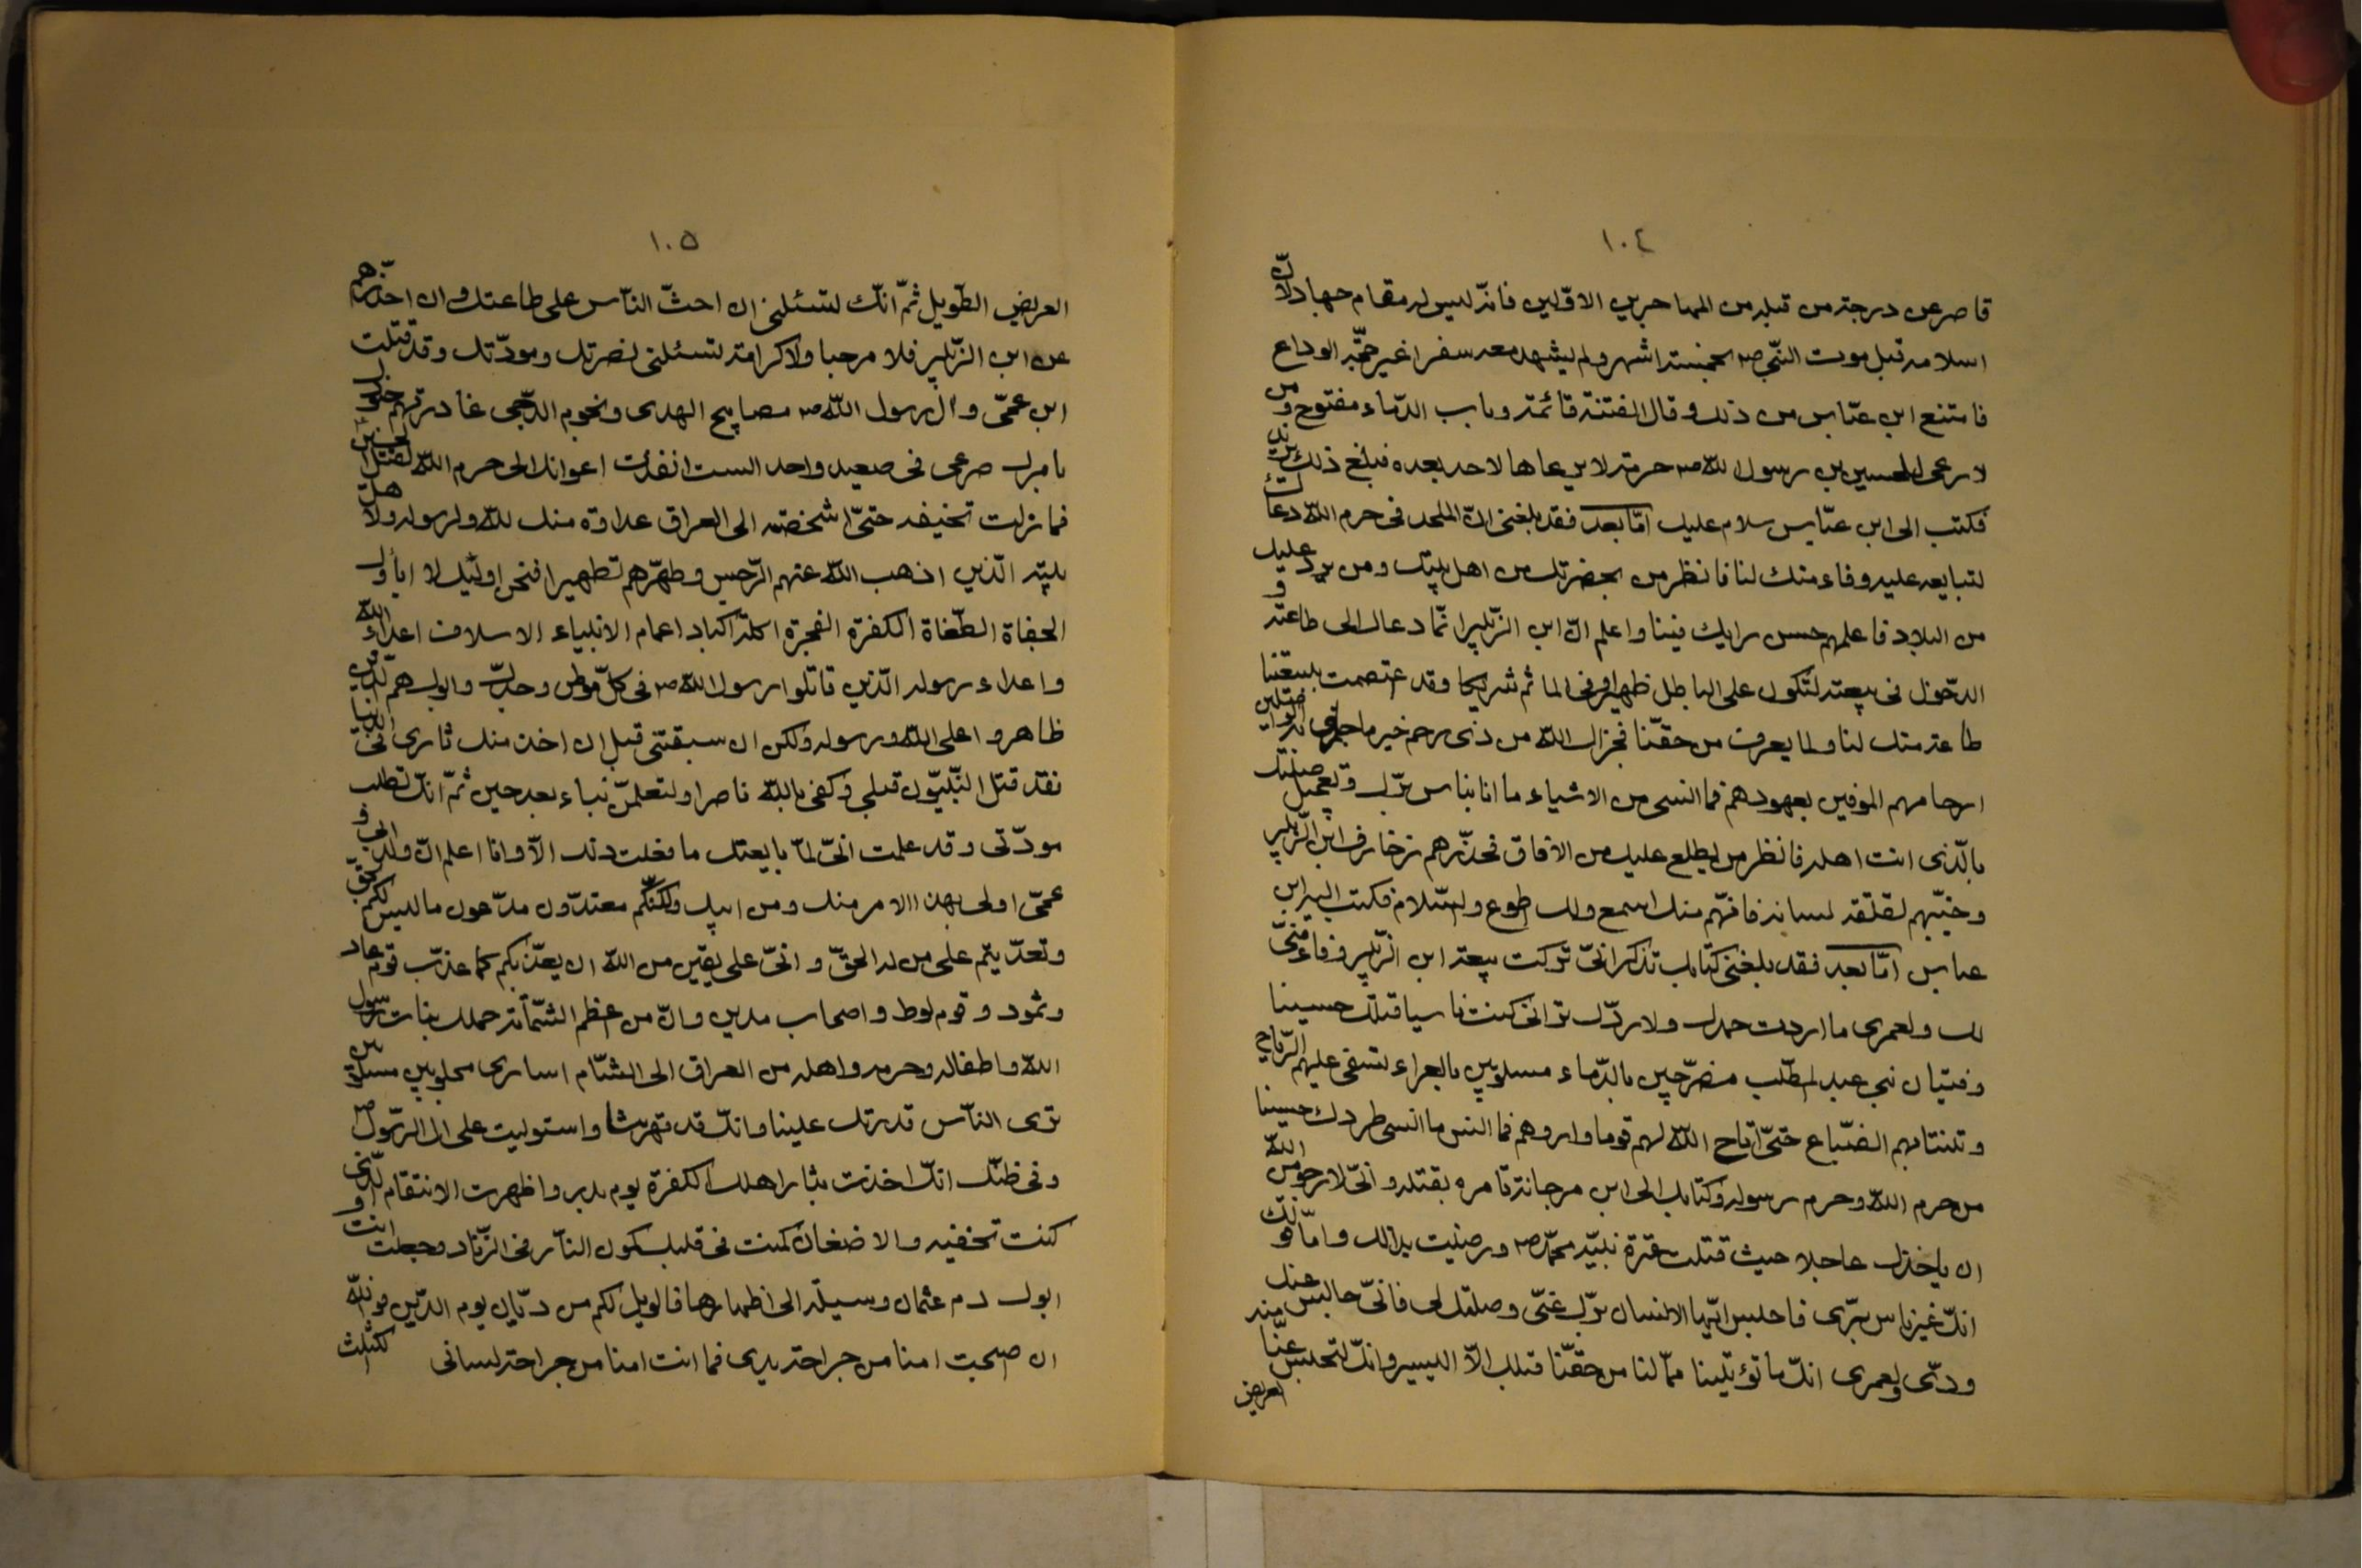 ١٠٤
قاصر عن درجة من قبله من المهاجرين الاوّلين فانّه ليس له مقام جهاد لانّ
اسلامه قبل موت النّبي ص بخمسة اشهر ولم يشهد معه سفرا غير حجّة الوداع
فامتنع ابن عبّاس من ذلك وقال الفتنة قائمة وباب الدّماء مفتوح ومن
لا رعى للحسين بن رسول الله ص حرمة لا يرعاها لاحد بعده فبلغ ذلك يزيد
فكتب الى ابن عبّاس سلام عليك امّا بعد فقد بلغنى انّ الملحد فى حرم الله دعاك
لتبايعه عليه وفاء منك لنا فانظر من بحضرتك من اهل بيتك ومن يرد عليك
من البلاد فاعلمهم حسن رايك فينا واعلم انّ ابن الزّبير انّما دعاك الى طاعته و
الدّخول فى بيعته لتكون على الباطل ظهيرا وفى الماثم شريكا وقد اعتصمت ببيعتنا
طاعة منك لنا ولما يعرف من حقّنا فجزاك الله من ذى رحم خير ما جازى به الواصلين
ارحامهم الموفين بعهودهم فما انسى من الاشياء ما انا بناس برّك وتعجيل صلتك
بالّذى انت اهله فانظر من يطلع عليك من الافاق فحذّرهم زخارف ابن الزّبير
وجنّبهم لقلقة لسانه فانّهم منك اسمع ولك اطوع والسّلام فكتب اليه ابن
عباس امّا بعد فقد بلغنى كتابك تذكر انّى تركت بيعة ابن الزّبير وفاء منّى
لك ولعمرى ما اردت حمدك ولا ودّك ترانى كنت ناسيا قتلك حسينا
وفتيان بنى عبد المطّلب مضرّجين بالدّماء مسلوبين بالعراء تسفى عليهم الرّياح
وتنتابهم الضّباع حتّى اتاح الله لهم قوما واروهم فما انس ما انسى طردك حسينا
من حرم الله وحرم رسوله وكتابك الى ابن مرجانة تامره بقتله وانّى لارجو من الله
ان ياخذك عاجلا حيث قتلت عترة نبيّه محمّد ص ورضيت بذالك وامّا قولك
انّك غير ناس برّى فاحبس ايّها الانسان برّك عنّى وصلتك لى فانّى حابس عنك
ودّى ولعمرى انّك ما تؤتينا ممّا لنا من حقّنا قبلك الّا اليسير وانّك لتحبس عنّا منه
العريض
١٠٥
العريض الطّويل ثمّ انّك لتسئلنى ان احثّ النّاس على طاعتك وان احذّرهم
عن ابن الزّبير فلا مرحبا ولا كرامة تسئلنى نصرتك ومودّتك وقد قتلت
ابن عمّى وآل رسول الله ص مصابيح الهدى ونجوم الدّجى غادرتهم خيولك
بامرك صرعى فى صعيد واحد الست انفذت اعوانك الى حرم الله لقتل الحسين
فما زلت تخيفه حتّى اشخصته الى العراق عداوة منك لله ولرسوله ولاهل
بيته الّذين اذهب الله عنهم الرّجس وطهّرهم تطهيرا فنحن اولئك لا اباؤك
الجفاة الطّغاة الكفرة الفجرة اكلة اكباد اعمام الانبياء الاسلاف اعداء الله
واعداء رسوله الّذين قاتلوا رسول الله ص فى كلّ موطن وجدّك وابوك هم الّذين
ظاهروا على الله ورسوله ولكن ان سبقتنى قبل ان اخذ منك ثارى فى الدّنيا
فقد قتل النّبيّون قبلى وكفى بالله ناصرا ولتعلمنّ نباء بعد حين ثمّ انّك تطلب
مودّتى وقد علمت انّى لمّا بايعتك ما فعلت ذلك الّا وانا اعلم انّ ولد ابى و
عمّى اولى بهذا الامر منك ومن ابيك ولكنّكم معتدّون مدّعون ما ليس لكم بحق
وتعدّيتم على من له الحقّ وانّى على يقين من الله ان يعذّبكم كما عذّب قوم عاد
وثمود وقوم لوط واصحاب مدين وانّ من اعظم الشّماتة حملك بنات رسول
الله واطفاله وحرمه واهله من العراق الى الشّام اسارى مجلوبين مسلوبين
ترى النّاس قدرتك علينا وانّك قد قهرتنا واستوليت على ال الرّسول ص
وفى ظنّك انّك اخذت بثار اهلك الكفرة يوم بدر واظهرت الانتقام الّذى
كنت تخفيه والاضغان كمنت فى قلبك كمون النّار فى الزّناد وجعلت انت و
ابوك دم عثمان وسيلة الى اظهارها فالويل لكم من ديّان يوم الدّين فو الله
ان اصبحت امنا من جراحة يدى فما انت امنا من جراحة لسانى